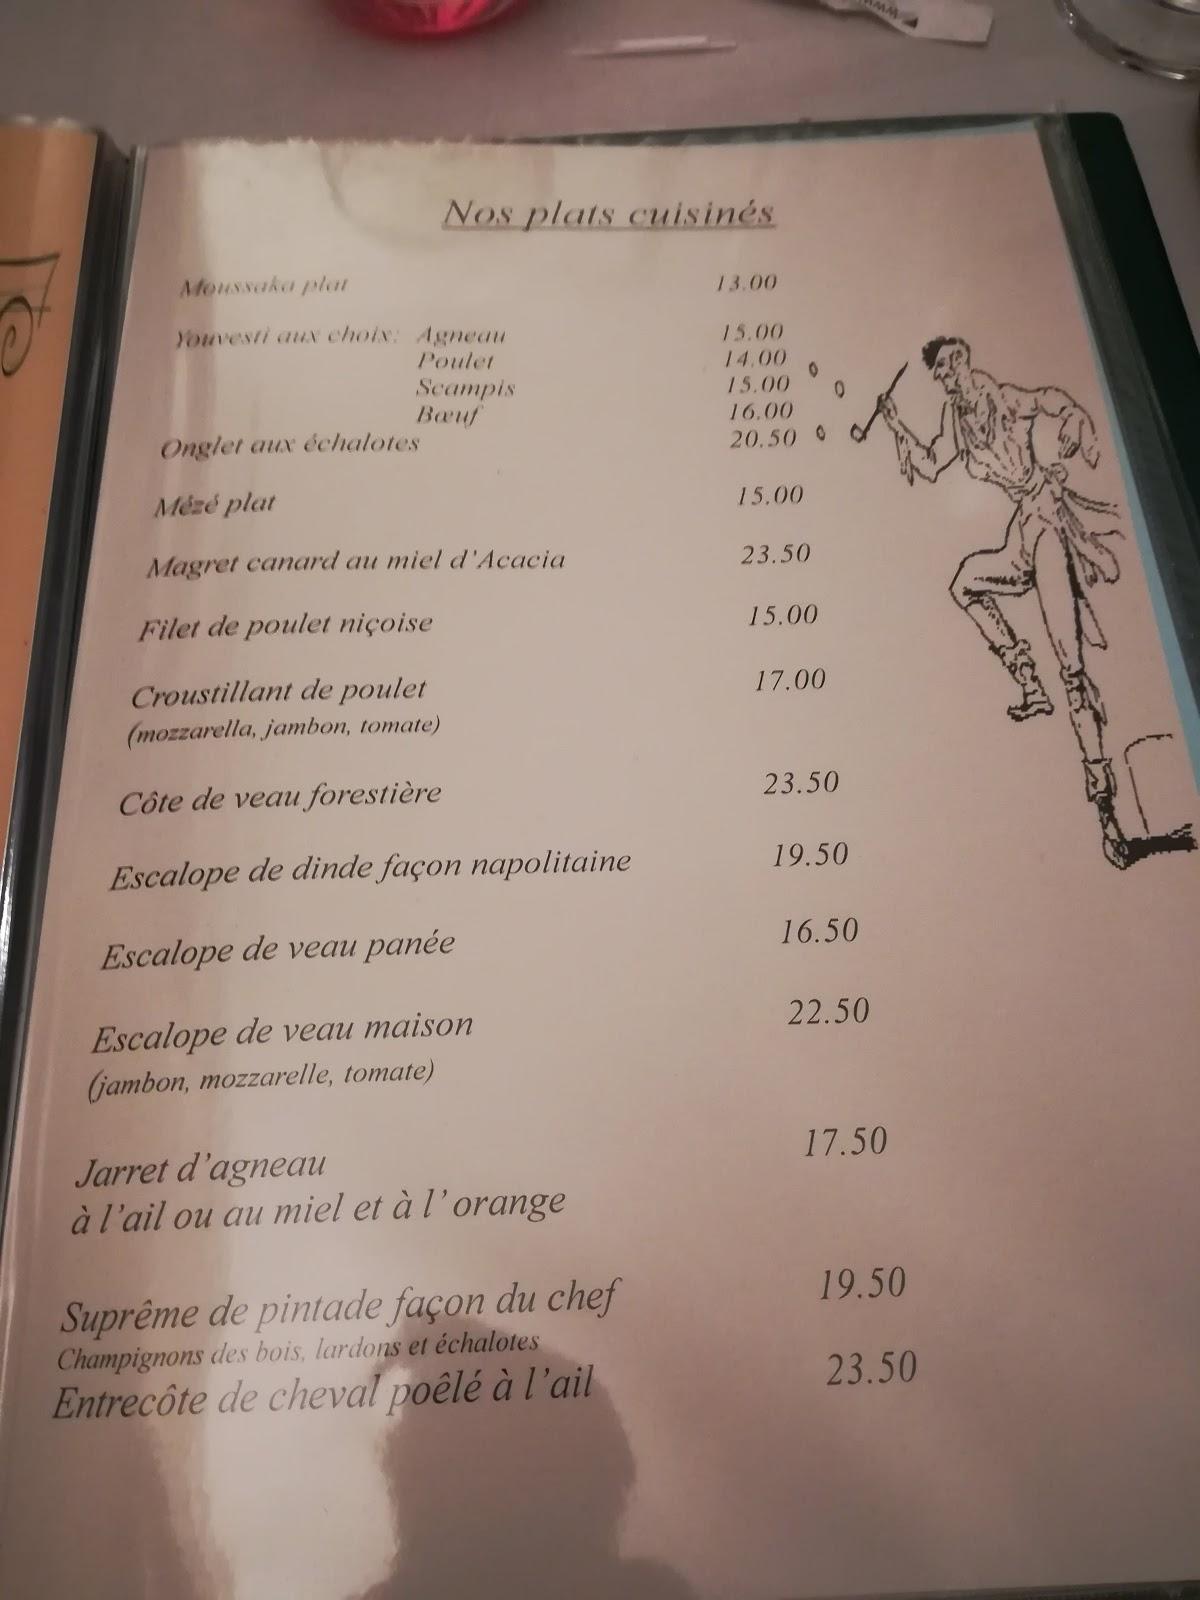 Nos plats cuisinés
Moussaka plat 13.00
Youvesti aux choix: Agneau 15.00
Poulet 14.00
Scampis 15.00
Bœuf 16.00
Onglet aux échalotes 20.50
Mézé plat 15.00
Magret canard au miel d'Acacia 23.50
Filet de poulet niçoise 15.00
Croustillant de poulet 17.00
(mozzarella, jambon, tomate)
Côte de veau forestière 23.50
Escalope de dinde façon napolitaine 19.50
Escalope de veau panée 16.50
Escalope de veau maison 22.50
(jambon, mozzarelle, tomate)
Jarret d'agneau 17.50
à l'ail ou au miel et à l' orange
Suprême de pintade façon du chef 19.50
Champignons des bois, lardons et échalotes
Entrecôte de cheval poêlé à l'ail 23.50